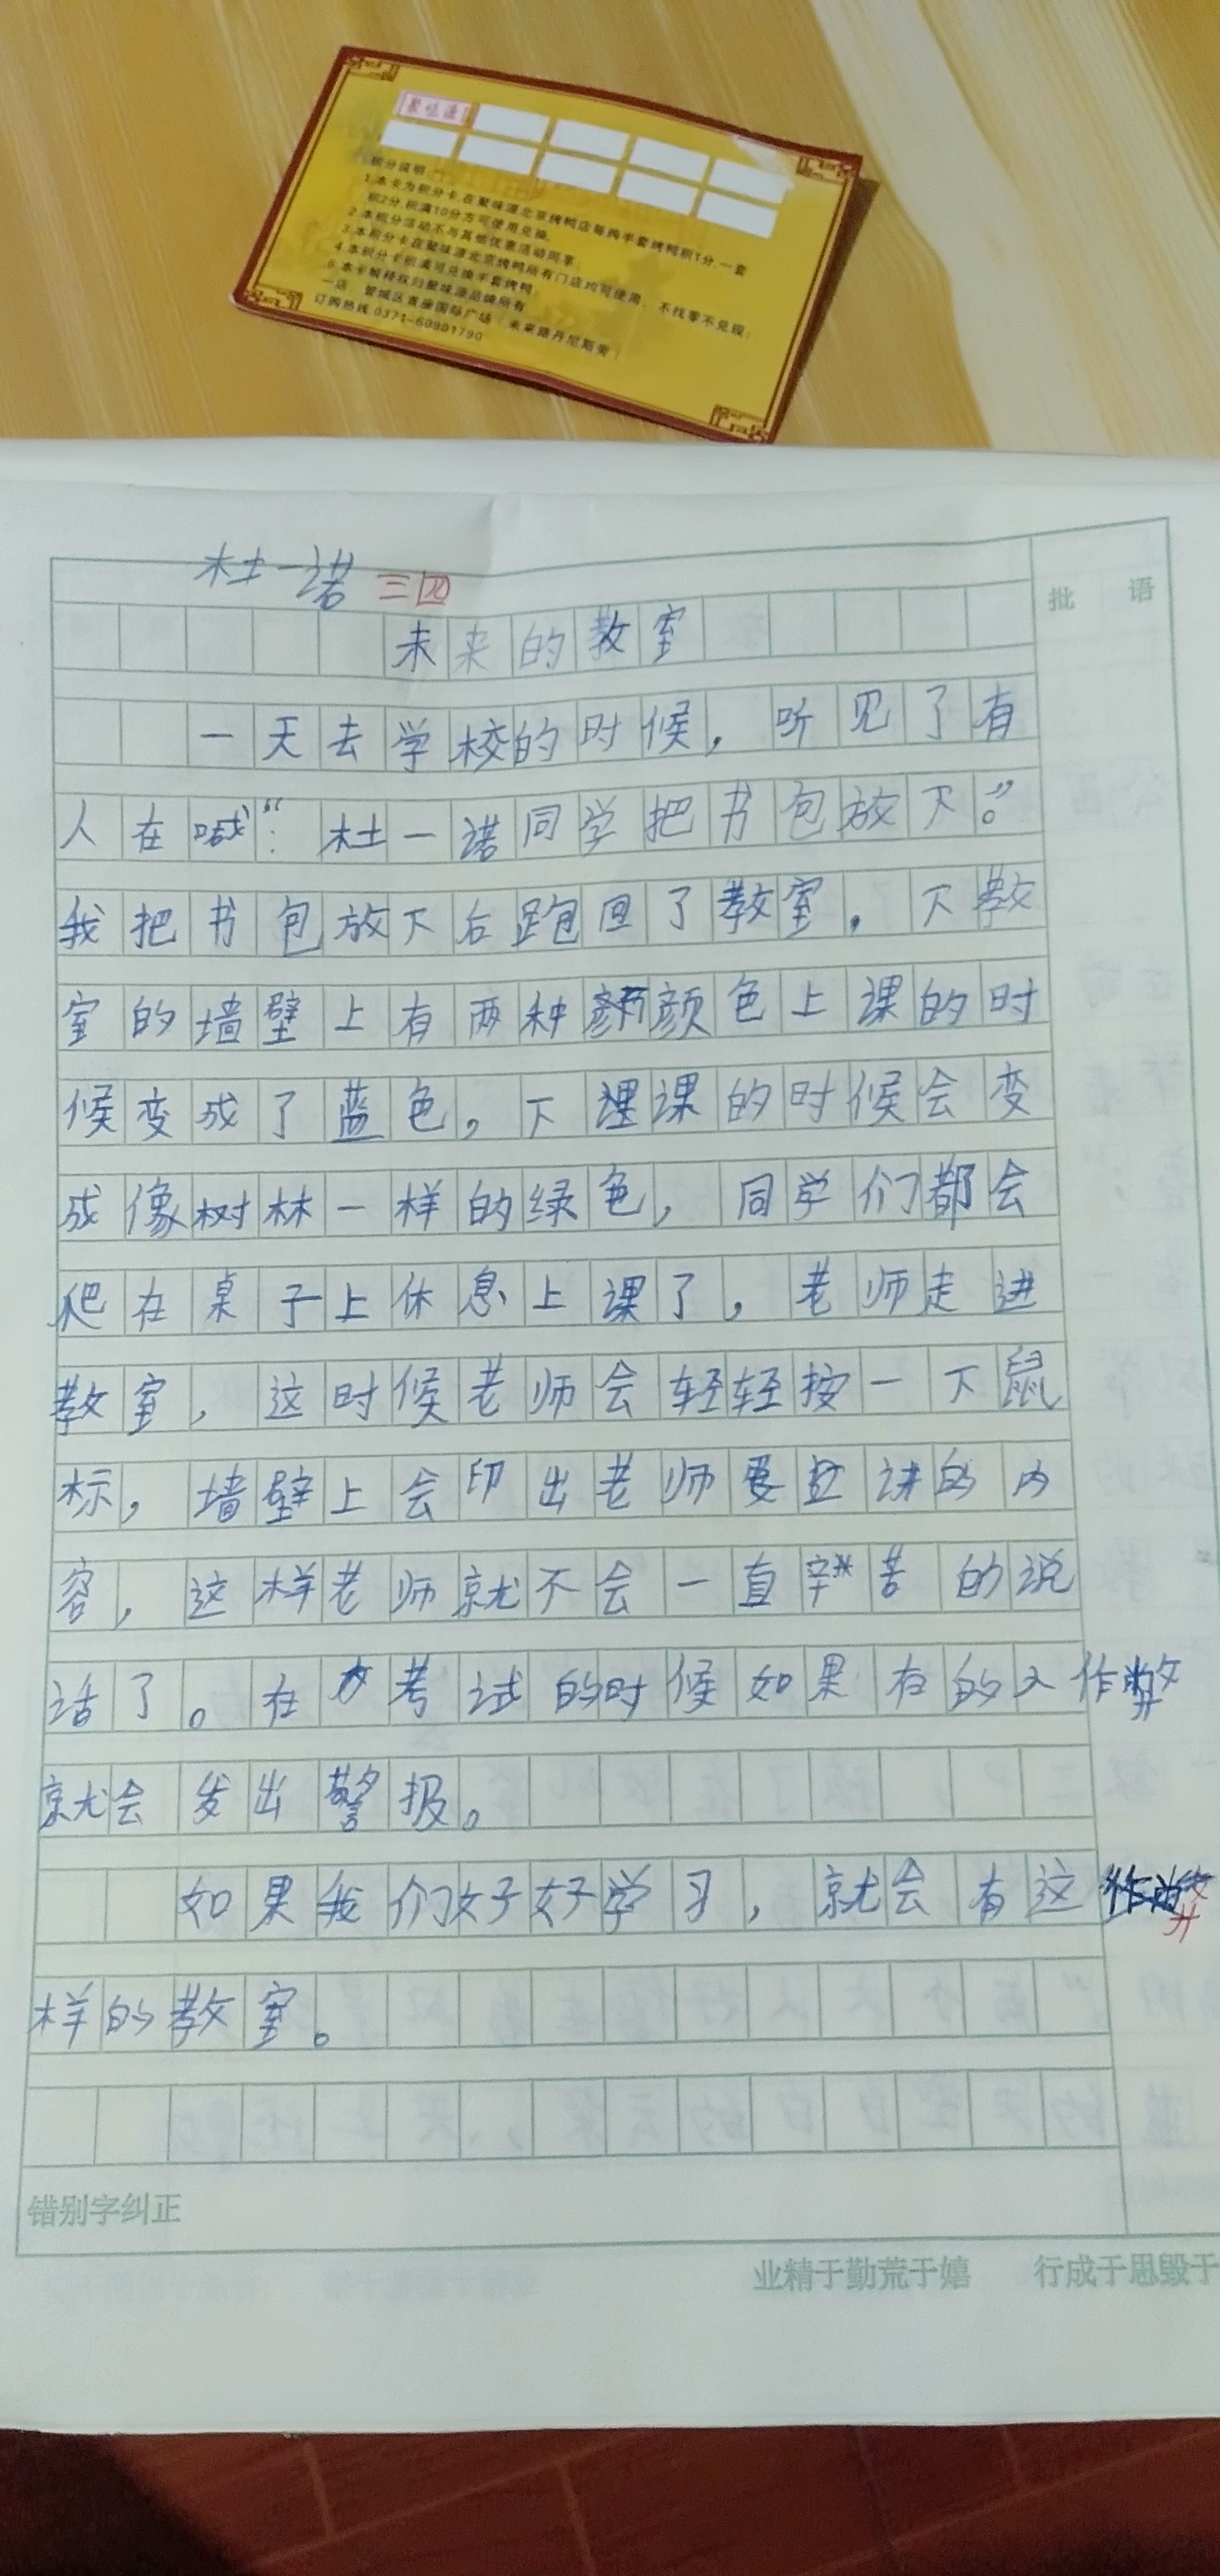 聚味源
积分说明:
1.本卡为积分卡,在聚味源北京烤鸭店每购半套烤鸭积1分,一套
积2分,积满10分方可使用兑换;
2.本积分活动不与其他优惠活动同享;
3.本积分卡在聚味源北京烤鸭所有门店均可使用,不找零不兑现;
4.本积分卡积满可兑换半套烤鸭;
5.本卡解释权归聚味源品牌所有
一店 管城区
国际广场(未来路丹尼斯旁)
订购热线:0371-60901790
杜一诺 三四
批 语
未来的教室
一天去学校的时候,听见了有
人在喊“:杜一诺同学把书包放下。”
我把书包放下后跑回了教室。下教
室的墙壁上有两种颜色上课的时
候变成了蓝色,下课的时候会变
成像树林一样的绿色,同学们都会
爬在桌子上休息上课了,老师走进
教室,这时候老师会轻轻按一下鼠
标,墙壁上会印出老师要讲的内
容,这样老师就不会一直辛苦的说
话了。在考试的时候如果有的人作弊
就会发出警报。
如果我们好好学习,就会有这
样的教室。
错别字纠正
业精于勤荒于嬉 行成于思毁于